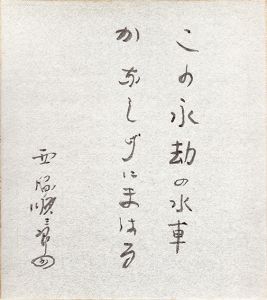 この永劫の水車
かなしげにまはる
西脇順三郎